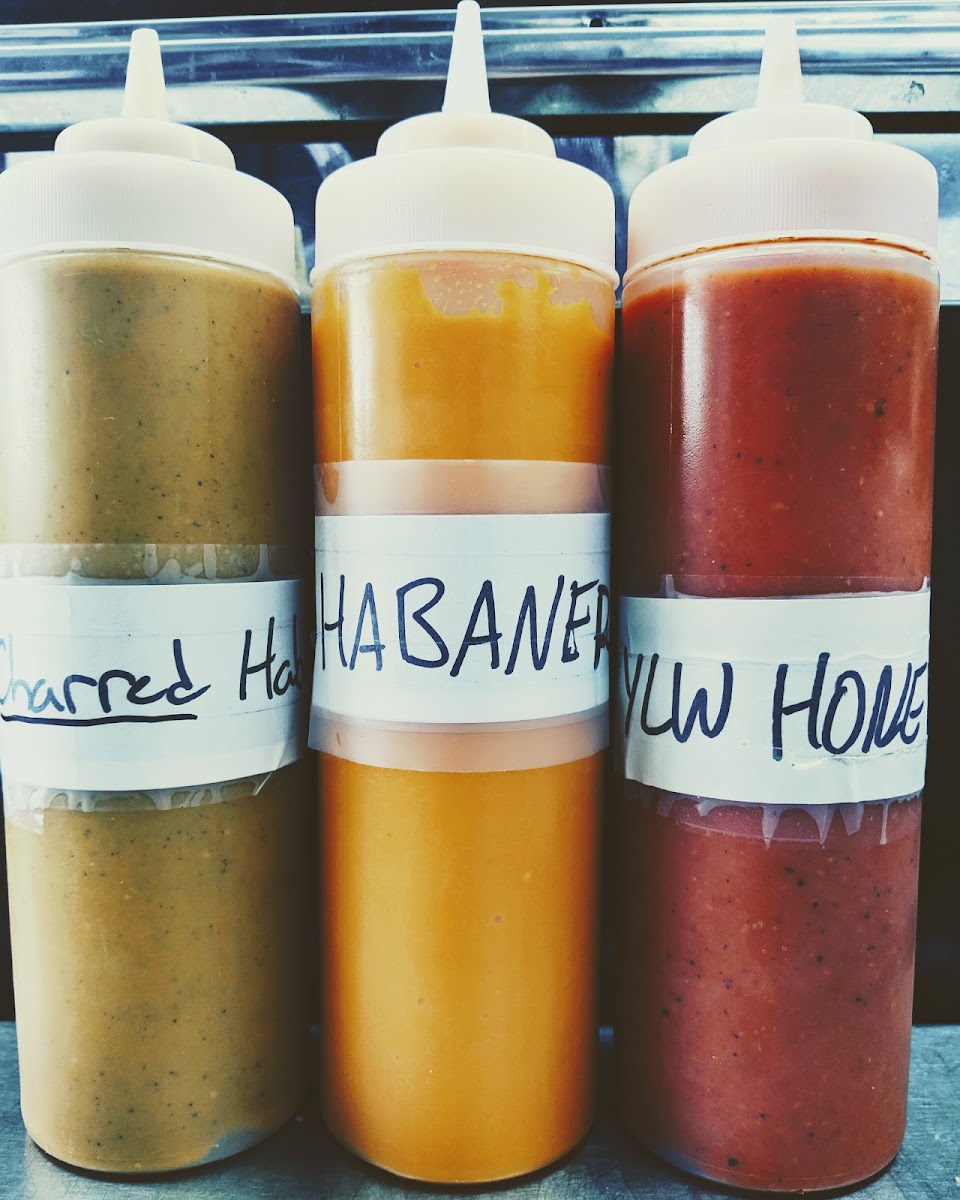 Charred Hab
HABANER
YLW HONE